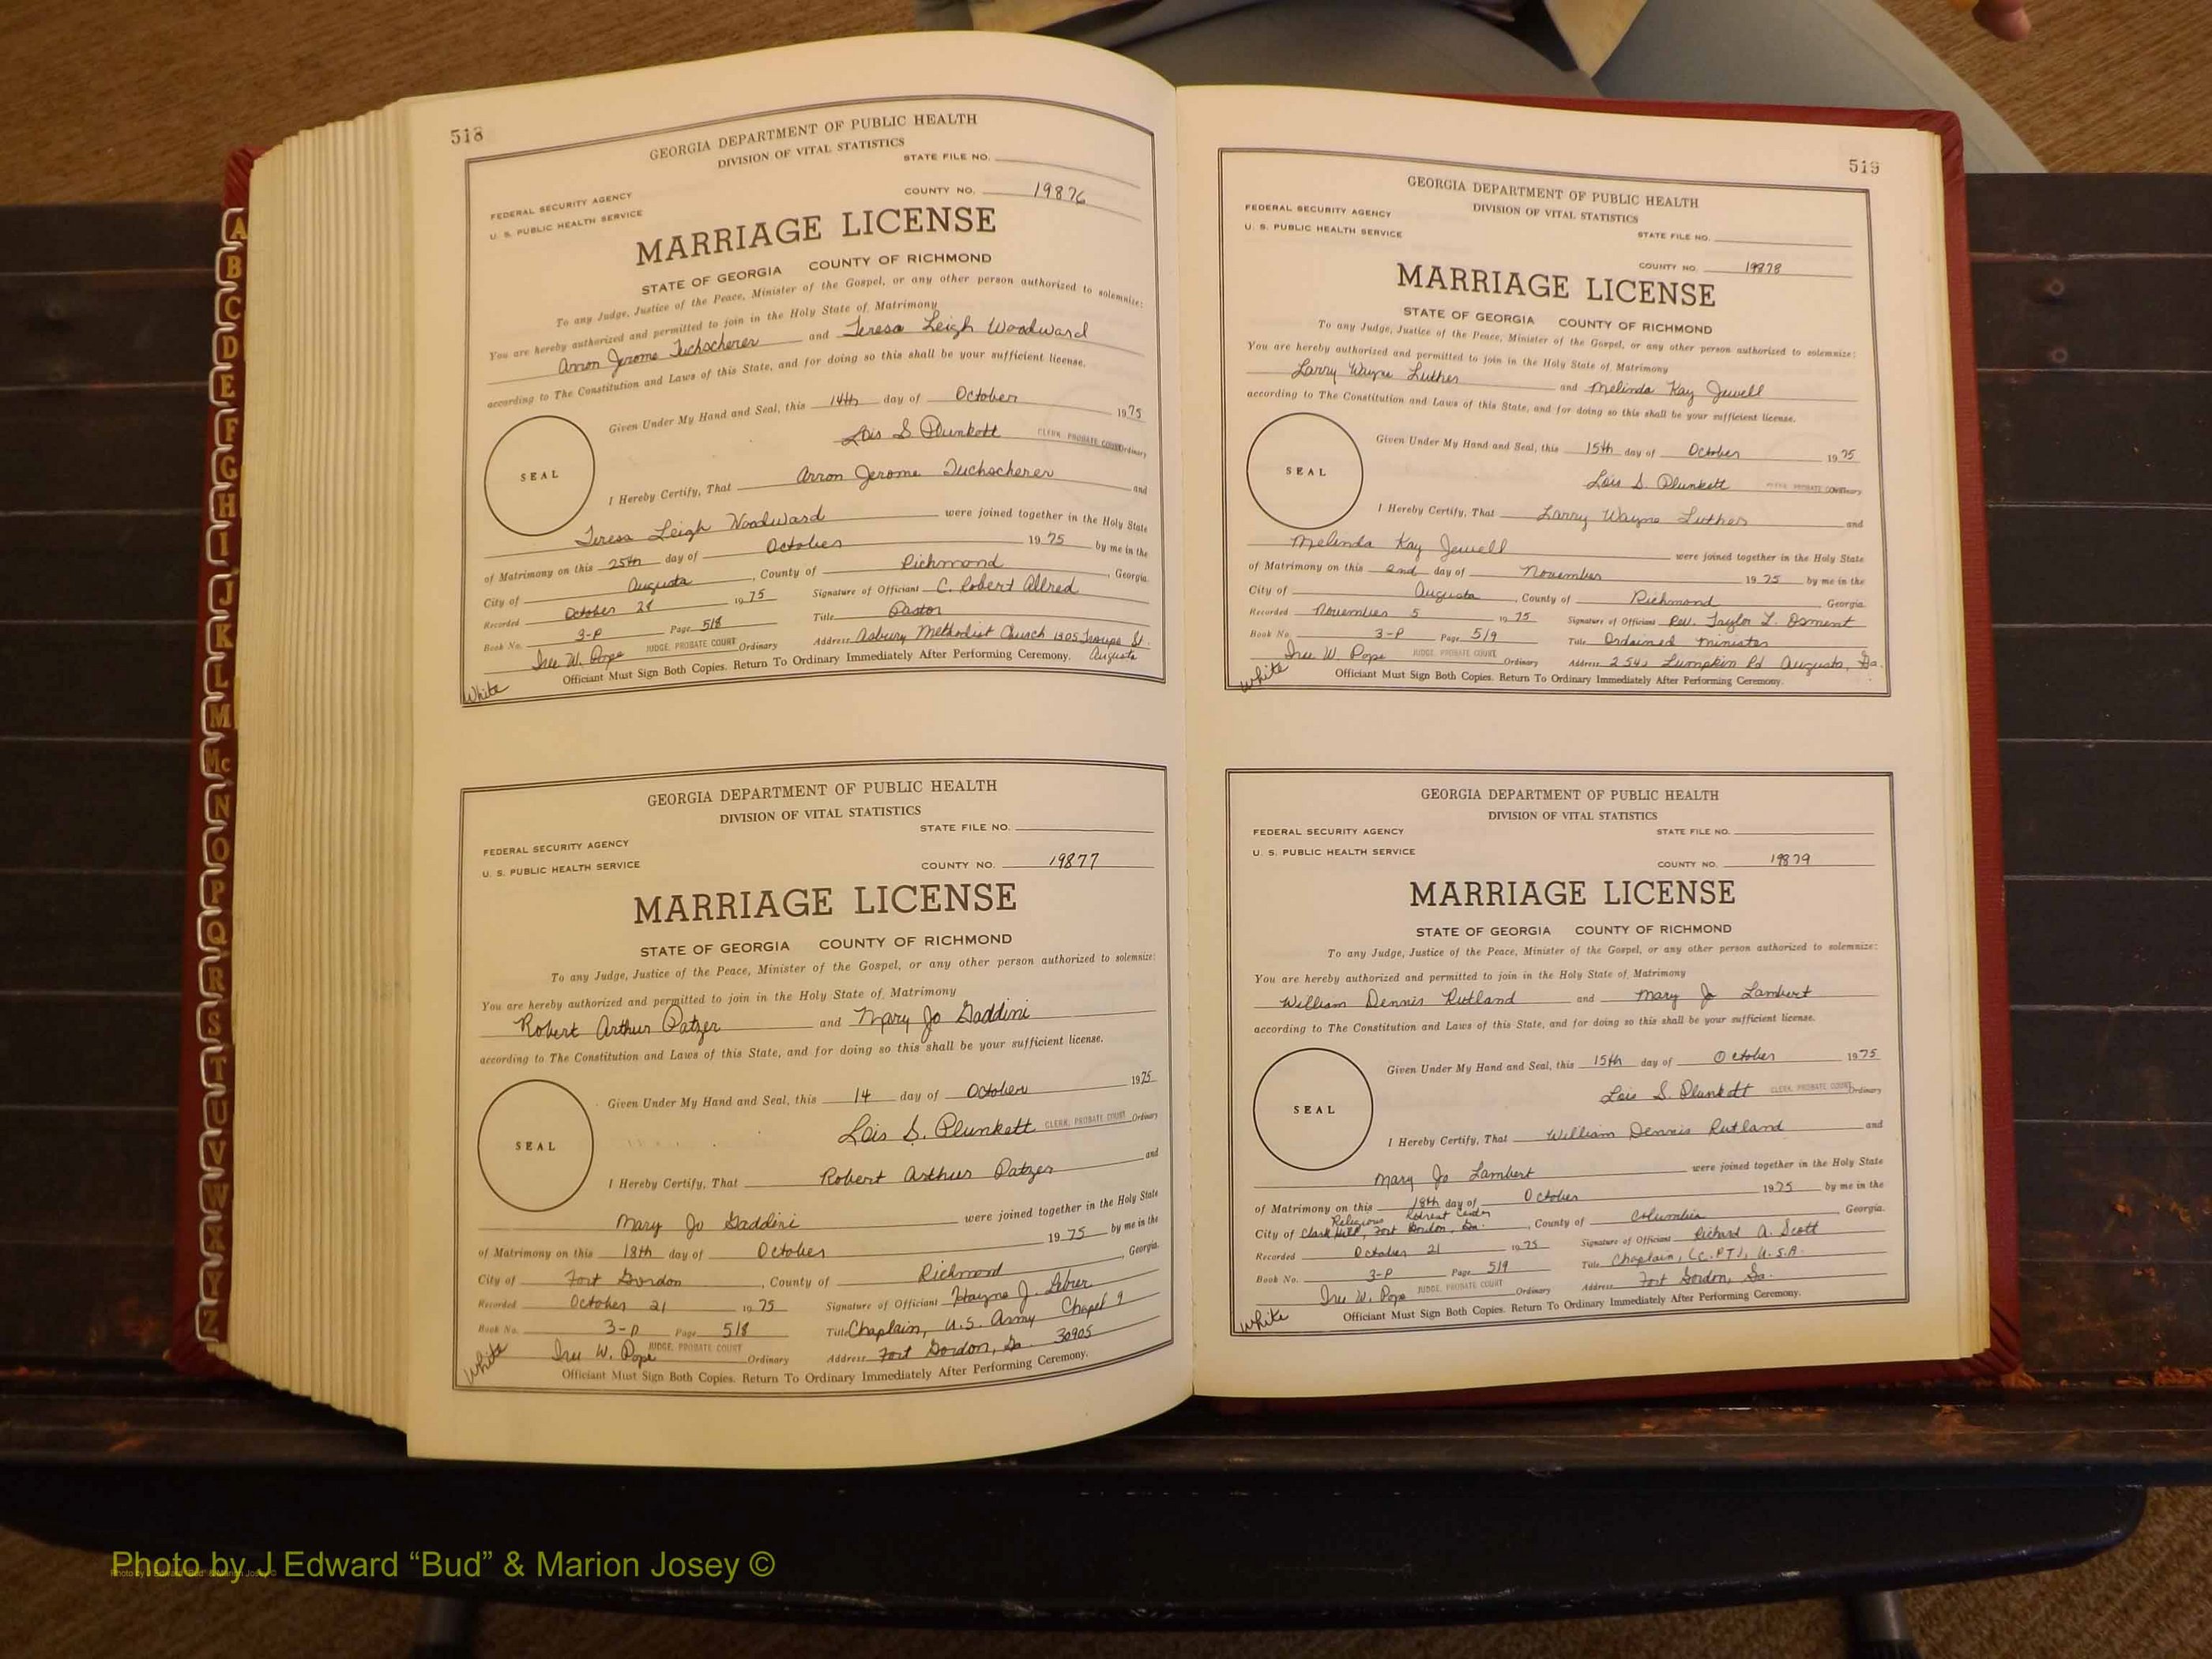 518
GEORGIA DEPARTMENT OF PUBLIC HEALTH
DIVISION OF VITAL STATISTICS
STATE FILE NO.
FEDERAL SECURITY AGENCY
U. S. PUBLIC HEALTH SERVICE
COUNTY NO. 19876
MARRIAGE LICENSE
STATE OF GEORGIA COUNTY OF RICHMOND
To any Judge, Justice of the Peace, Minister of the Gospel, or any other person authorized to solemnize:
You are hereby authorized and permitted to join in the Holy State of Matrimony
Arron Jerome Tuchscherer and Teresa Leigh Woodward
according to The Constitution and Laws of this State, and for doing so this shall be your sufficient license.
Given Under My Hand and Seal, this 14th day of October 1975
Lois S Plunkett CLERK, PROBATE COURT Ordinary
SEAL
I Hereby Certify, That Arron Jerome Tuchscherer and
Teresa Leigh Woodward were joined together in the Holy State
of Matrimony on this 25th day of October 1975 by me in the
City of Augusta, County of Richmond, Georgia.
Recorded October 28 1975 Signature of Officiant C. Robert Allred
Book No. 3-P Page 518 Title Pastor
Ire W. Pope JUDGE, PROBATE COURT Ordinary Address Asbury Methodist Church 1305 Troupe St.
Augusta
Officiant Must Sign Both Copies. Return To Ordinary Immediately After Performing Ceremony.
White
GEORGIA DEPARTMENT OF PUBLIC HEALTH
DIVISION OF VITAL STATISTICS
STATE FILE NO.
FEDERAL SECURITY AGENCY
U. S. PUBLIC HEALTH SERVICE
COUNTY NO. 19877
MARRIAGE LICENSE
STATE OF GEORGIA COUNTY OF RICHMOND
To any Judge, Justice of the Peace, Minister of the Gospel, or any other person authorized to solemnize:
You are hereby authorized and permitted to join in the Holy State of Matrimony
Robert Arthur Patzer and Mary Jo Gaddini
according to The Constitution and Laws of this State, and for doing so this shall be your sufficient license.
Given Under My Hand and Seal, this 14 day of October 1975
Lois S. Plunkett CLERK, PROBATE COURT Ordinary
SEAL
I Hereby Certify, That Robert Arthur Patzer and
Mary Jo Gaddini were joined together in the Holy State
of Matrimony on this 18th day of October 1975 by me in the
City of Fort Gordon, County of Richmond, Georgia.
Recorded October 21 1975 Signature of Officiant Wayne J.
Book No. 3-P Page 518 Title Chaplain, U.S. Army Chapel 9
Ire W. Pope JUDGE, PROBATE COURT Ordinary Address Fort Gordon, Ga. 30905
Officiant Must Sign Both Copies. Return To Ordinary Immediately After Performing Ceremony.
White
519
GEORGIA DEPARTMENT OF PUBLIC HEALTH
DIVISION OF VITAL STATISTICS
FEDERAL SECURITY AGENCY
U. S. PUBLIC HEALTH SERVICE
STATE FILE NO.
COUNTY NO. 19878
MARRIAGE LICENSE
STATE OF GEORGIA COUNTY OF RICHMOND
To any Judge, Justice of the Peace, Minister of the Gospel, or any other person authorized to solemnize:
You are hereby authorized and permitted to join in the Holy State of Matrimony
Larry Wayne Luther and Melinda Kay Jewell
according to The Constitution and Laws of this State, and for doing so this shall be your sufficient license.
Given Under My Hand and Seal, this 15th day of October 1975
Lois S. Plunkett CLERK, PROBATE COURT Ordinary
SEAL
I Hereby Certify, That Larry Wayne Luther and
Melinda Kay Jewell were joined together in the Holy State
of Matrimony on this 2nd day of November 1975 by me in the
City of Augusta, County of Richmond Georgia.
Recorded November 5 1975 Signature of Officiant Rev. Taylor L. Osment
Book No. 3-P Page 519 Title Ordained minister
Ire W. Pope JUDGE, PROBATE COURT Ordinary Address Lumpkin Rd Augusta, Ga.
Officiant Must Sign Both Copies. Return To Ordinary Immediately After Performing Ceremony.
White
GEORGIA DEPARTMENT OF PUBLIC HEALTH
DIVISION OF VITAL STATISTICS
FEDERAL SECURITY AGENCY
STATE FILE NO.
U. S. PUBLIC HEALTH SERVICE
COUNTY NO. 19879
MARRIAGE LICENSE
STATE OF GEORGIA COUNTY OF RICHMOND
To any Judge, Justice of the Peace, Minister of the Gospel, or any other person authorized to solemnize:
You are hereby authorized and permitted to join in the Holy State of Matrimony
William Dennis Rutland and Mary Jo Lambert
according to The Constitution and Laws of this State, and for doing so this shall be your sufficient license.
Given Under My Hand and Seal, this 15th day of October 1975
Lois S. Plunkett CLERK, PROBATE COURT Ordinary
SEAL
I Hereby Certify, That William Dennis Rutland and
Mary Jo Lambert were joined together in the Holy State
of Matrimony on this 18th day of October 1975 by me in the
Religious Retreat Center
City of Clark Hill, Fort Gordon, Ga., County of Columbia, Georgia.
Recorded October 21 1975 Signature of Officiant Richard A. Scott
Book No. 3-P Page 519 Title Chaplain, (CPT), U.S.A.
Ire W. Pope JUDGE, PROBATE COURT Ordinary Address Fort Gordon, Ga.
Officiant Must Sign Both Copies. Return To Ordinary Immediately After Performing Ceremony.
White
A
B
C
D
E
F
G
H
I
J
K
L
M
Mc
N
O
P
Q
R
S
T
U
V
W
X
Y
Z
Photo by J Edward “Bud” & Marion Josey ©
Photo by J Edward “Bud” & Marion Josey ©